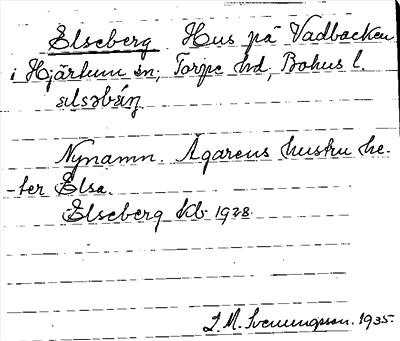 Elseberg Hus på Vadbacken
i Hjärtum sn, Torpe hd, Bohus l.
ælsəbáŋ
Nynamn. Ägarens hustru he-
-ter Elsa.
Elseberg kb 1928
L. M. Svenungsson. 1935.